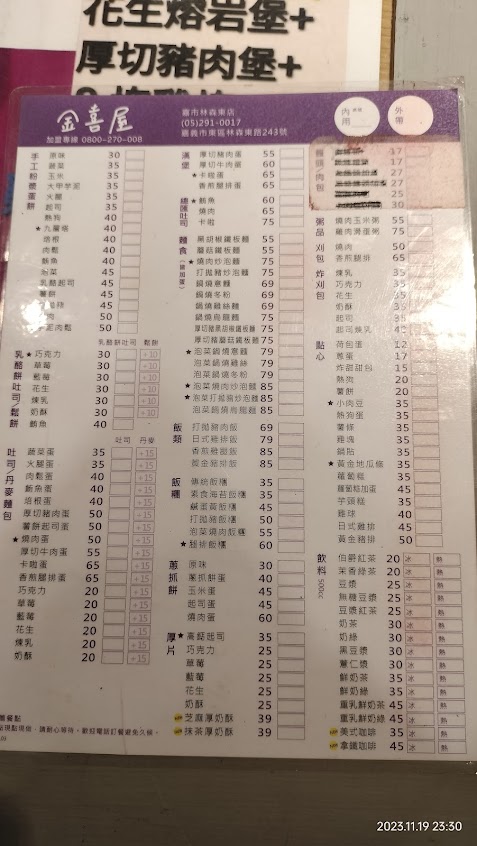 花生熔岩堡+
厚切豬肉堡+
金喜屋
加盟專線 0800-270-008
嘉市林森東店
(05)291-0017
嘉義市東區林森東路243號
內用
外帶
手工粉漿蛋餅
原味 30
蔬菜 35
玉米 35
大甲芋泥 35
火腿 35
起司 35
熱狗 40
★九層塔 40
培根 40
肉鬆 40
鮪魚 40
泡菜 40
乳酪起司 45
薯餅 45
50
50
乳酪餅吐司 鬆餅
乳酪餅吐司/鬆餅
★巧克力 30 +10
草莓 30 +10
藍莓 30 +10
花生 30 +10
煉乳 30 +10
奶酥 30 +10
鮪魚 40
吐司 丹麥
吐司/丹麥麵包
蔬菜蛋 35 +15
火腿蛋 35 +15
肉鬆蛋 40 +15
鮪魚蛋 40 +15
培根蛋 40 +15
厚切豬肉蛋 50 +15
薯餅起司蛋 50 +15
★燒肉蛋 50 +15
厚切牛肉蛋 55 +15
卡啦蛋 65 +15
香煎腿排蛋 65 +15
巧克力 20 +15
草莓 20 +15
藍莓 20 +15
花生 20 +15
煉乳 20 +15
奶酥 20 +15
漢堡
厚切豬肉蛋 55
厚切牛肉蛋 60
★卡啦蛋 65
香煎腿排蛋 65
總匯吐司
★鮪魚 60
燒肉 65
卡啦 75
麵食
黑胡椒鐵板麵 55
蘑菇鐵板麵 55
★燒肉炒泡麵 75
打拋豬炒泡麵 75
鍋燒意麵 69
鍋燒冬粉 69
鍋燒雞絲麵 69
鍋燒烏龍麵 75
厚切豬黑胡椒鐵板麵 75
厚切豬蘑菇鐵板麵 75
★泡菜鍋燒意麵 79
泡菜鍋燒雞絲 79
泡菜鍋燒冬粉 79
★泡菜燒肉炒泡麵 85
★泡菜打拋豬炒泡麵 85
泡菜鍋燒烏龍麵 85
飯類
打拋豬肉飯 69
日式雞排飯 79
香煎雞腿飯 85
黃金豬排飯 85
飯糰
傳統飯糰 35
素食海苔飯糰 35
鹹蛋黃飯糰 45
打拋豬飯糰 50
泡菜燒肉飯糰 55
★腿排飯糰 60
蔥抓餅
原味 30
蔥抓餅蛋 40
玉米蛋 45
起司蛋 45
燒肉蛋 60
厚片
★高鈣起司 35
巧克力 25
草莓 25
藍莓 25
花生 25
奶酥 25
芝麻厚奶酥 39
抹茶厚奶酥 39
17
17
27
27
25
30
粥品
燒肉玉米粥 55
雞肉滑蛋粥 75
刈包
燒肉 50
香煎腿排 65
炸刈包
煉乳 35
巧克力 35
花生 35
奶酥 35
起司 35
起司煉乳 40
點心
荷包蛋 12
蔥蛋 17
炸甜甜包 15
熱狗 20
薯餅 20
★小肉豆 35
熱狗蛋 35
薯條 35
雞塊 35
鍋貼 35
★黃金地瓜條 35
蘿蔔糕 35
蘿蔔糕加蛋 45
芋頭糕 35
雞球 40
日式雞排 45
黃金豬排 50
飲料 500cc
伯爵紅茶 20 冰 熱
茉香綠茶 20 冰 熱
豆漿 25 冰 熱
無糖豆漿 25 冰 熱
豆漿紅茶 25 冰 熱
奶茶 30 冰 熱
奶綠 30 冰 熱
黑豆漿 30 冰 熱
薏仁漿 30 冰 熱
鮮奶茶 35 冰 熱
鮮奶綠 35 冰 熱
重乳鮮奶茶 45 冰 熱
重乳鮮奶綠 45 冰 熱
美式咖啡 35 冰 熱
拿鐵咖啡 45 冰 熱
2023.11.19 23:30